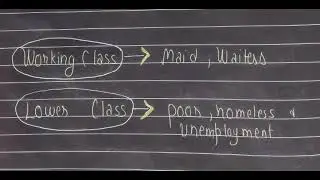 Working Class → Maid, Waiters
Lower Class → poor, homeless &
unemployment